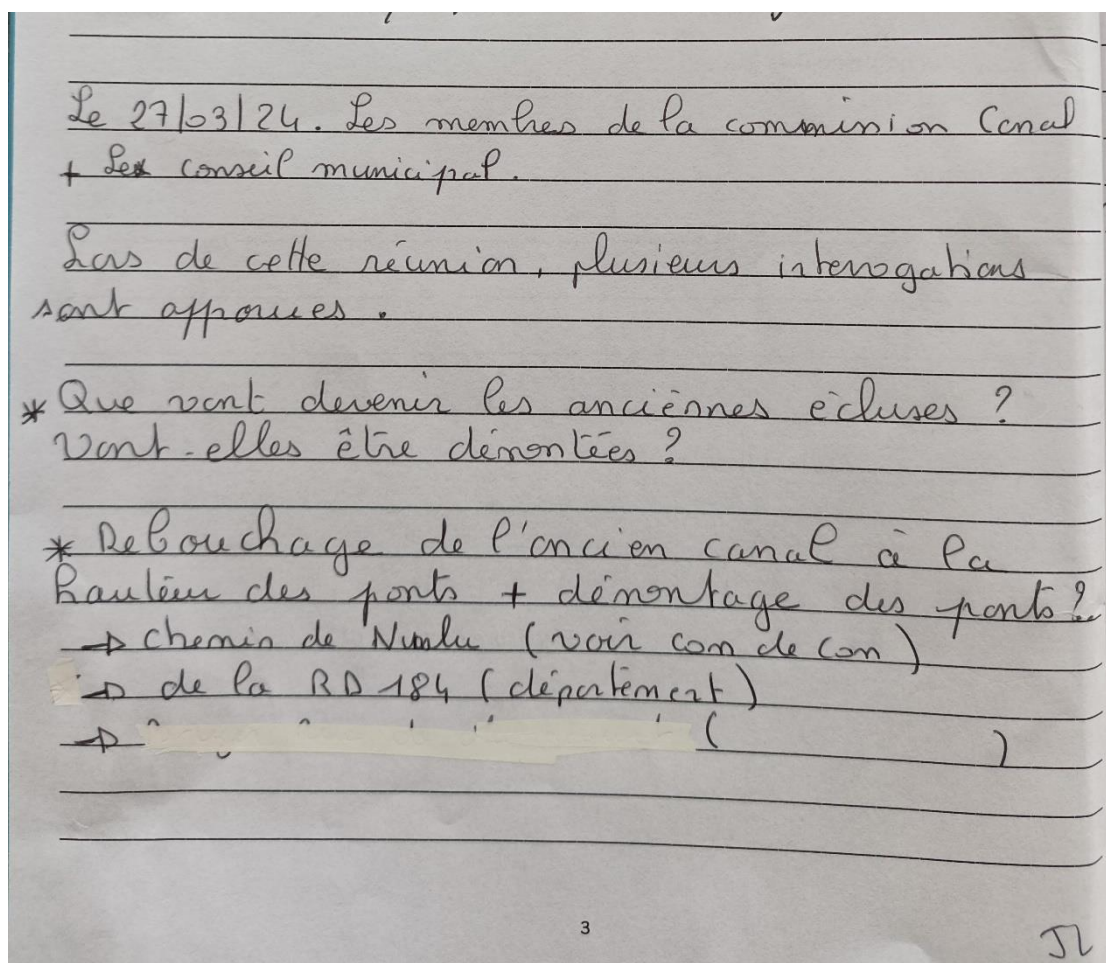 Le 27/03/24. Les membres de la commission Canal
+ Le conseil municipal.
Lors de cette réunion, plusieurs interrogations
sont apparues.
* Que vont devenir les anciennes écluses ?
Vont-elles être démontées ?
* Rebouchage de l'ancien canal à la
hauteur des ponts + démontage des ponts ?
→ chemin de Nurlu (voir com de com)
→ de la RD 184 (département)
→ ( )
3
JL